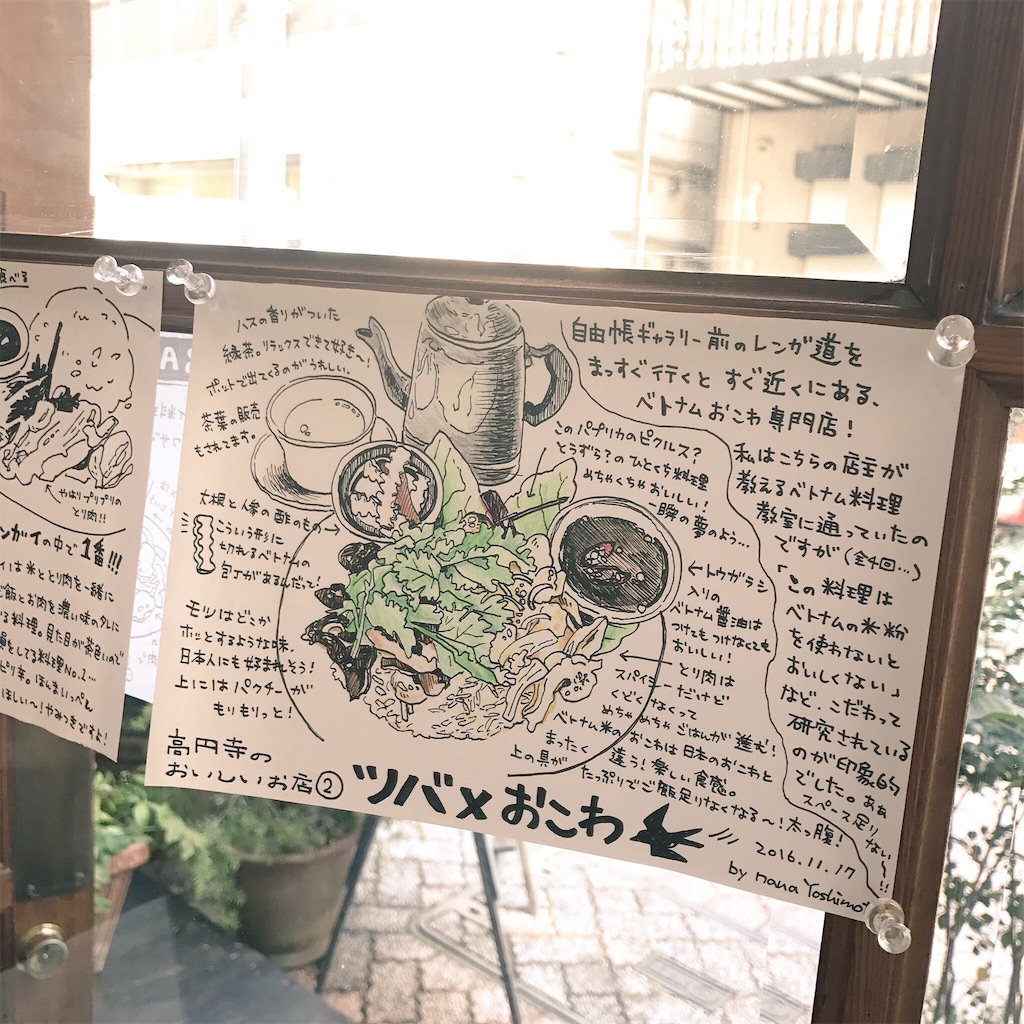 食べる
やはりプリプリの
とり肉!!
ンガイの中で1番!!!
イは米ととり肉を一緒に
ご飯とお肉を濃い味のタレに
る料理。見た目が茶色いので
ピリ辛。ほんまいっぺん
ほしい〜!やみつきですよ!
ハスの香りがついた
緑茶。リラックスできて好き〜!
ポットで出てくるのがうれしい。
茶葉の販売
もされてます。
大根と人参の酢のもの→
こういう形に
切れるベトナムの
包丁があるんだって!
モツはどこか
ホッとするような味。
日本人にも好まれそう!
上にはパクチーが
もりもりっと!
このパプリカのピクルス?
とうずら?のひとくち料理
めちゃくちゃおいしい!
一瞬の夢のよう…
←トウガラシ
入りの
ベトナム醤油は
つけてもつけなくとも
おいしい!
←とり肉は
スパイシーだけど
くどくなくって
めちゃめちゃごはんが進む!
ベトナム米のおこわは日本のおこわと
まったく違う!楽しい食感。
上の具がたっぷりでご飯足りなくなる〜!太っ腹!
自由帳ギャラリー前のレンガ道を
まっすぐ行くとすぐ近くにある、
ベトナムおこわ専門店!
私はこちらの店主が
教えるベトナム料理
教室に通っていたの
ですが(全4回…)
「この料理は
ベトナムの米粉
を使わないと
おいしくない」
など、こだわって
研究されている
のが印象的
でした。ああ
スペース足りない〜!!
高円寺の
おいしいお店②
ツバメおこわ
2016.11.17
by nana Yoshimo